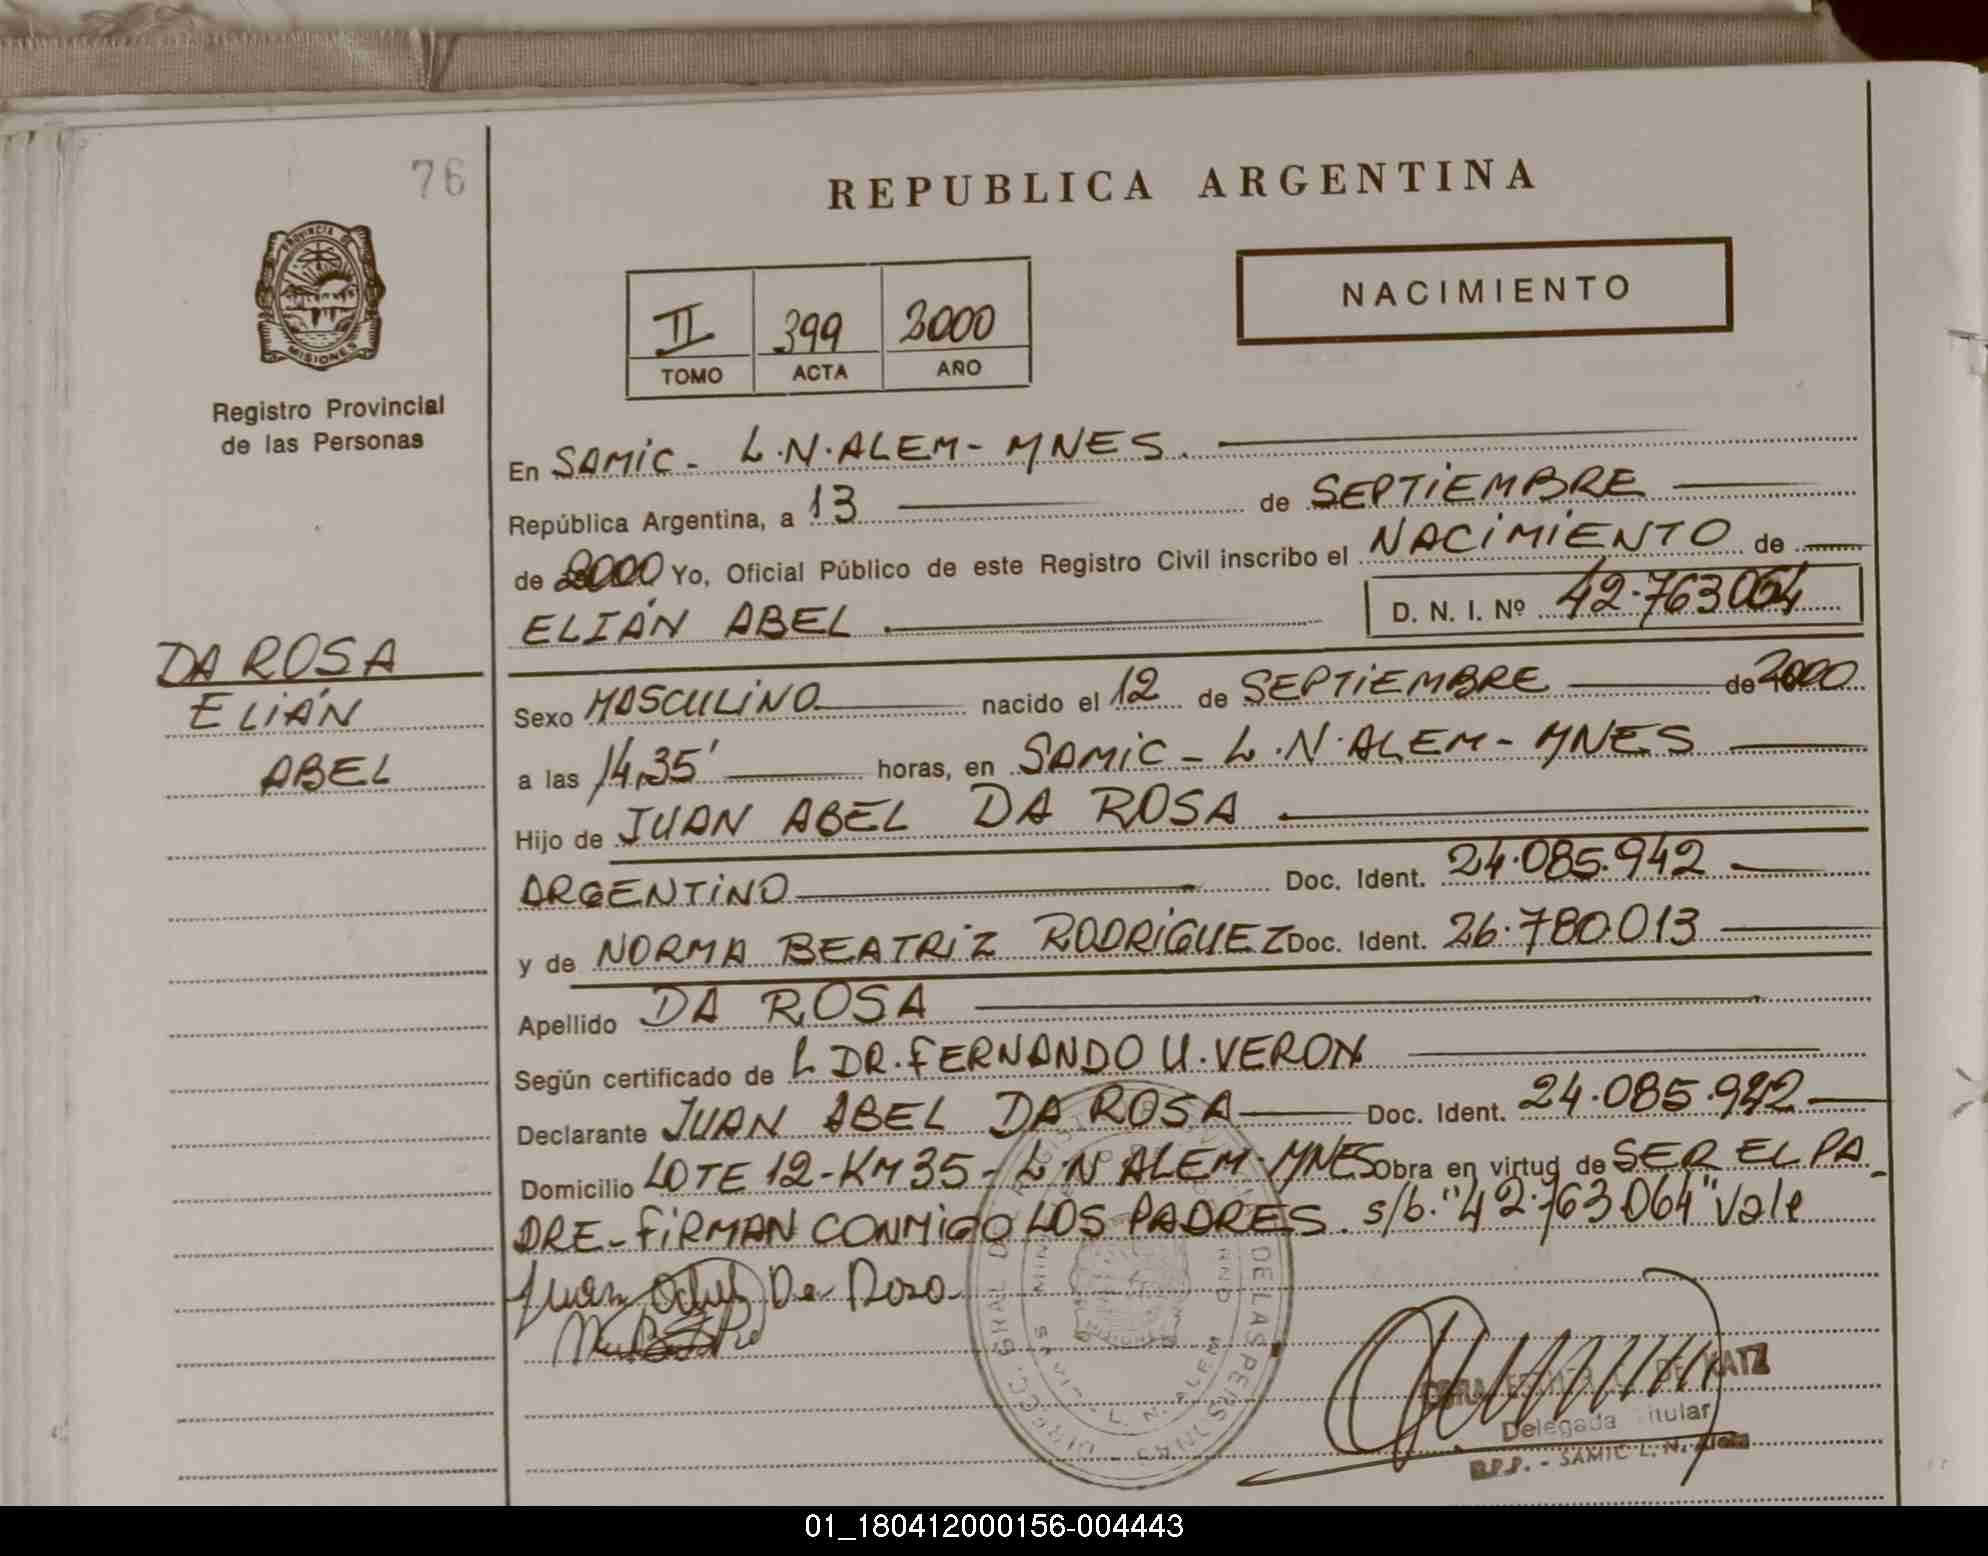 76
REPUBLICA ARGENTINA
PROVINCIA DE
MISIONES
Registro Provincial
de las Personas
II 399 2000
TOMO ACTA AÑO
NACIMIENTO
En SAMIC - L.N. ALEM - MNES.
República Argentina, a 13 de SEPTIEMBRE
de 2000 Yo, Oficial Público de este Registro Civil inscribo el NACIMIENTO de
ELIÁN ABEL. D. N. I. Nº 42.763064
DA ROSA
ELIÁN
ABEL
Sexo MASCULINO nacido el 12 de SEPTIEMBRE de 2000
a las 14,35' horas, en SAMIC - L.N. ALEM - MNES
Hijo de JUAN ABEL DA ROSA
ARGENTINO Doc. Ident. 24.085.942
y de NORMA BEATRIZ RODRIGUEZ Doc. Ident. 26.780.013
Apellido DA ROSA
Según certificado de L DR. FERNANDO U. VERON
Declarante JUAN ABEL DA ROSA Doc. Ident. 24.085.942
Domicilio LOTE 12 - KM 35 - L N ALEM - MNES Obra en virtud de SER EL PA_
DRE - FIRMAN CONMIGO LOS PADRES. s/b. "42.763.064" Vale
Juan Abel Da Rosa
DE KATZ
Delegada Titular
R.P.P. - SAMIC L. N. Alem
01_180412000156-004443